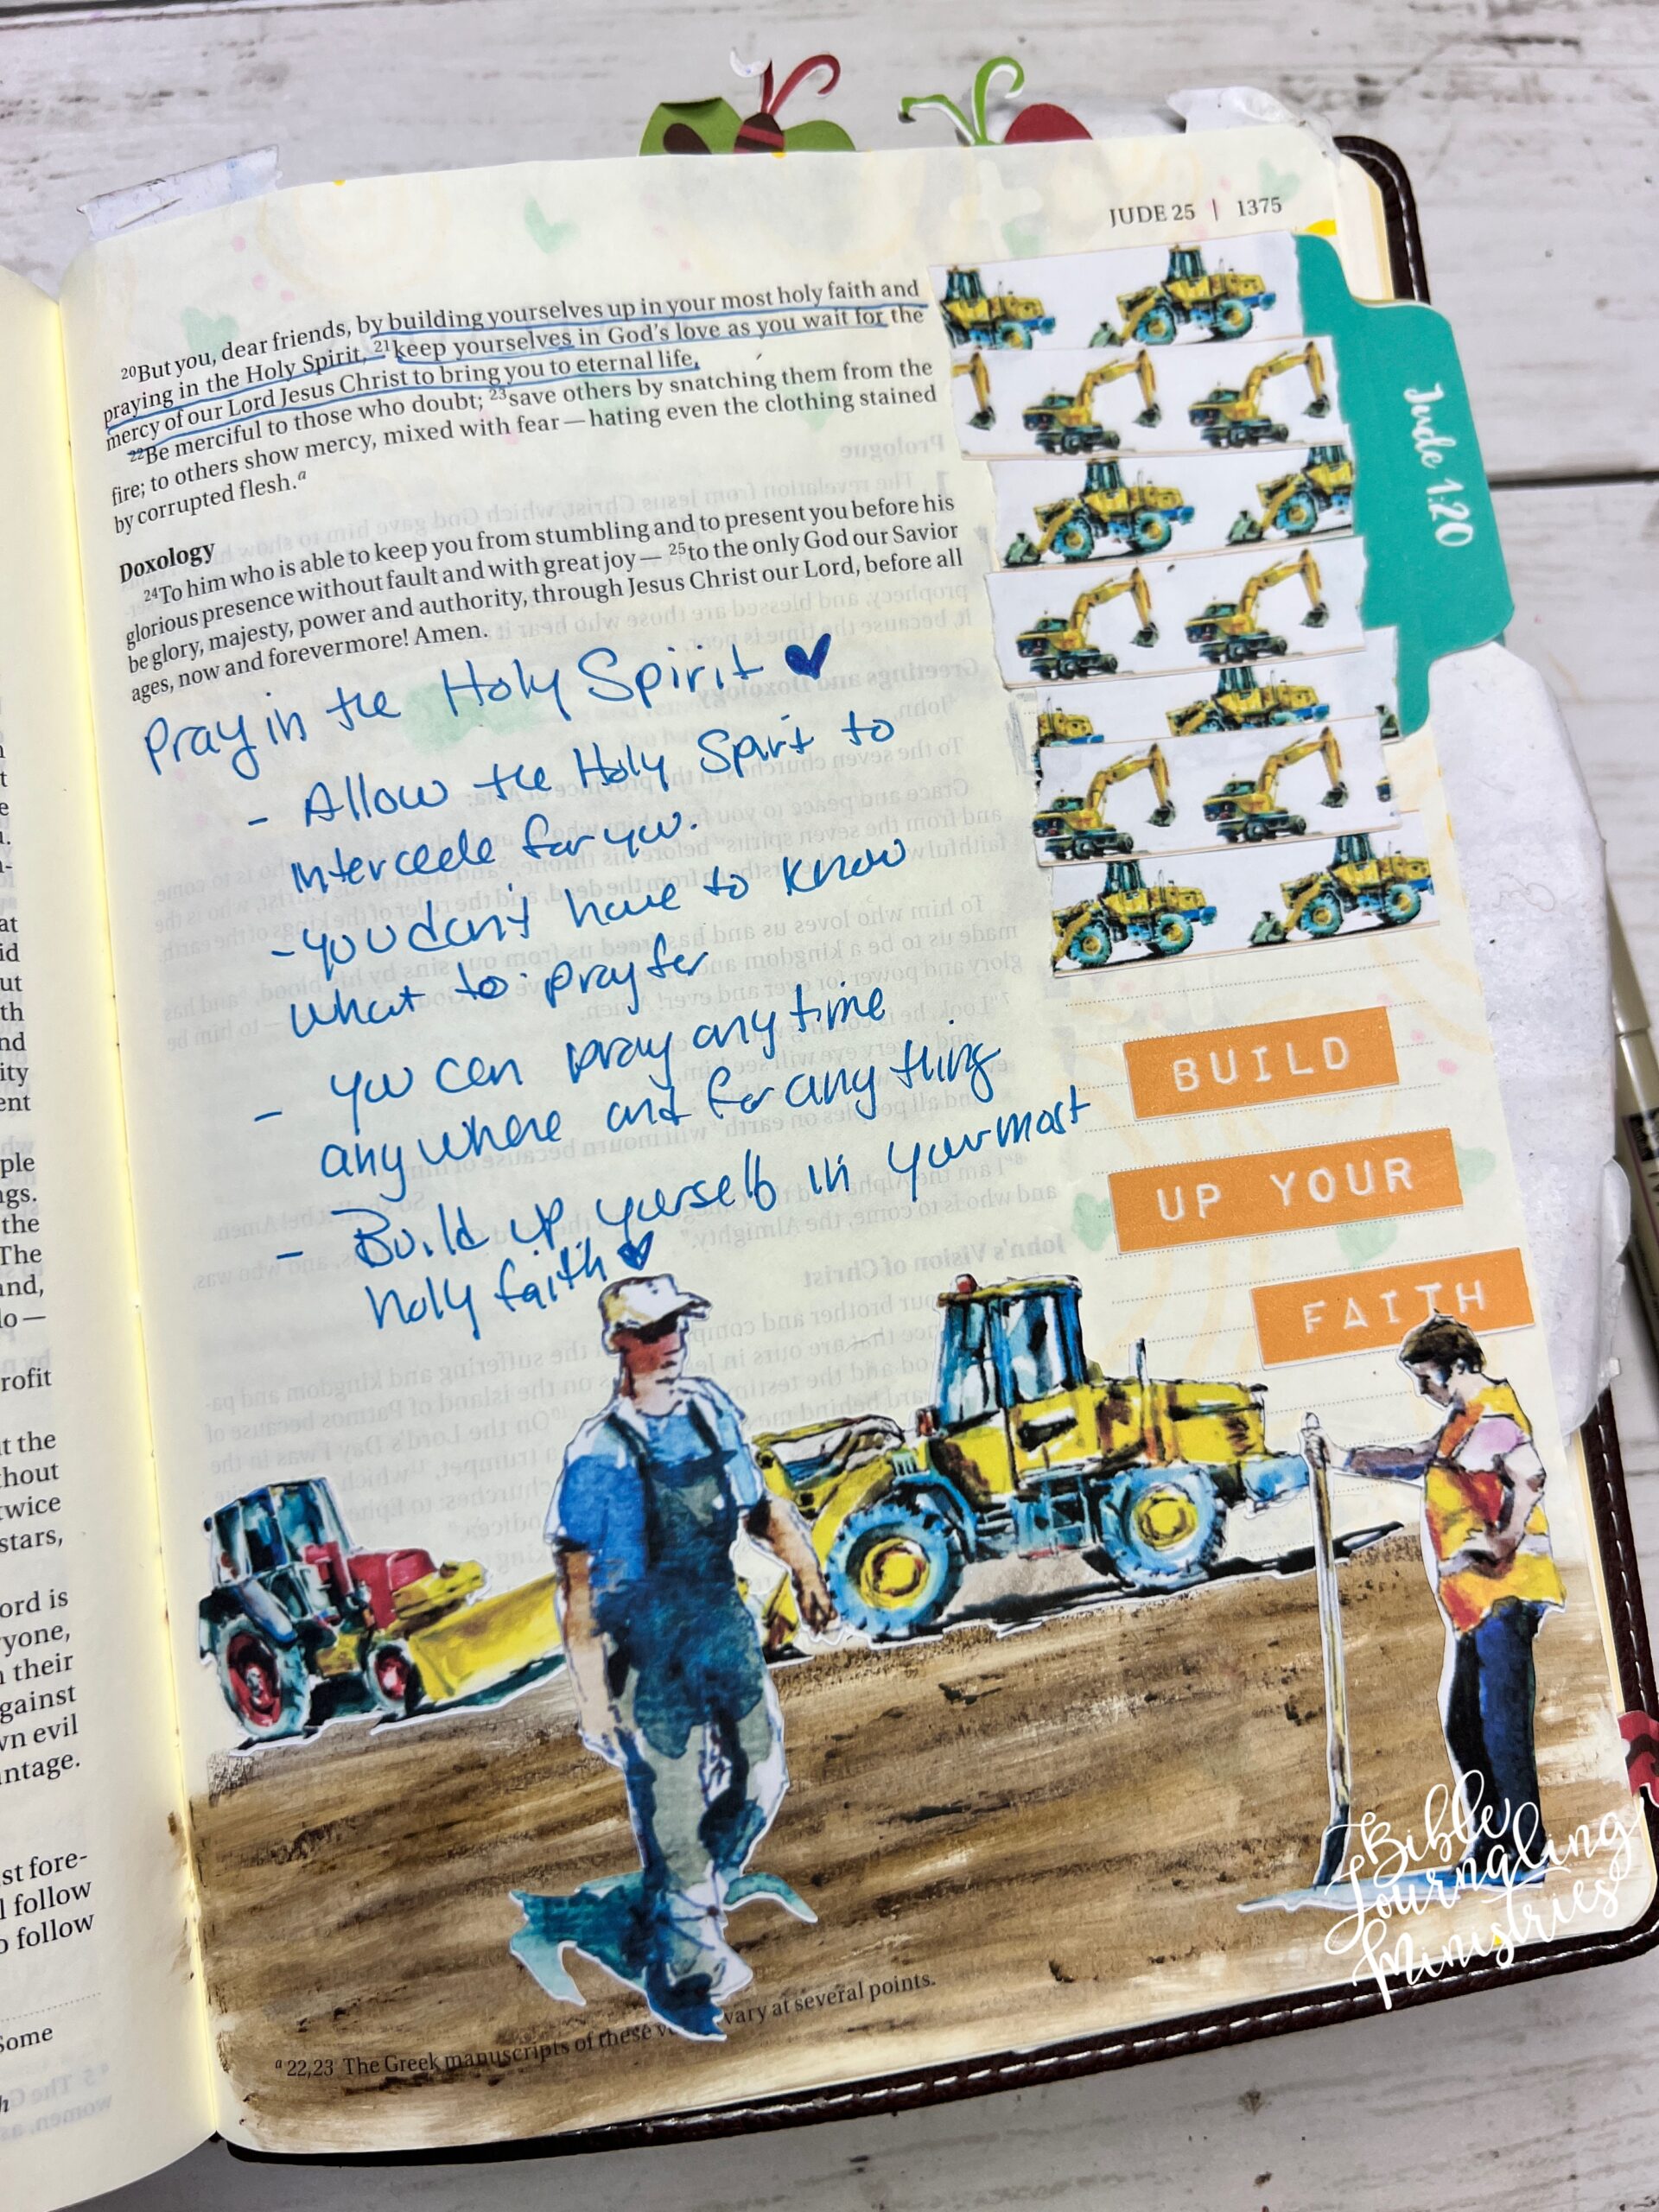 JUDE 25 | 1375
²⁰But you, dear friends, by building yourselves up in your most holy faith and
praying in the Holy Spirit, ²¹keep yourselves in God's love as you wait for the
mercy of our Lord Jesus Christ to bring you to eternal life.
²²Be merciful to those who doubt; ²³save others by snatching them from the
fire; to others show mercy, mixed with fear — hating even the clothing stained
by corrupted flesh.ᵃ
Doxology
²⁴To him who is able to keep you from stumbling and to present you before his
glorious presence without fault and with great joy — ²⁵to the only God our Savior
be glory, majesty, power and authority, through Jesus Christ our Lord, before all
ages, now and forevermore! Amen.
Pray in the Holy Spirit
- Allow the Holy Spirit to
intercede for you.
- you don't have to know
what to pray for
- you can pray anytime
anywhere and for anything
- Build up yourself in your most
holy faith
Jude 1:20
BUILD
UP YOUR
FAITH
ᵃ 22,23 The Greek manuscripts of these vary at several points.
Bible
Journaling
Ministries
at
id
ut
th
nd
ity
ent
ple
ngs.
the
The
and,
do —
rofit
t the
thout
twice
stars,
ord is
yone,
their
gainst
wn evil
antage.
st fore-
l follow
o follow
Some